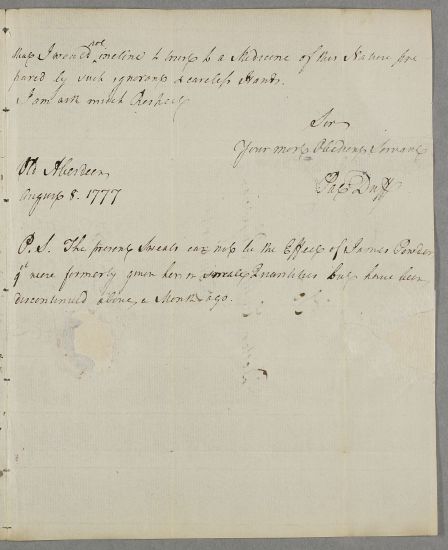 that I would not incline to trust to a Medicine of this Nature pre
pared by such ignorant & careless Hands.
I am with much Respect
Sir
Your most Obedient Servant
Pat Duff
Old Aberdeen
August 8. 1777
P.S. The present Sweats can not be the Effect of James Powders
yt were formerly given her in small Quantities but have been
discontinued above a Month ago.